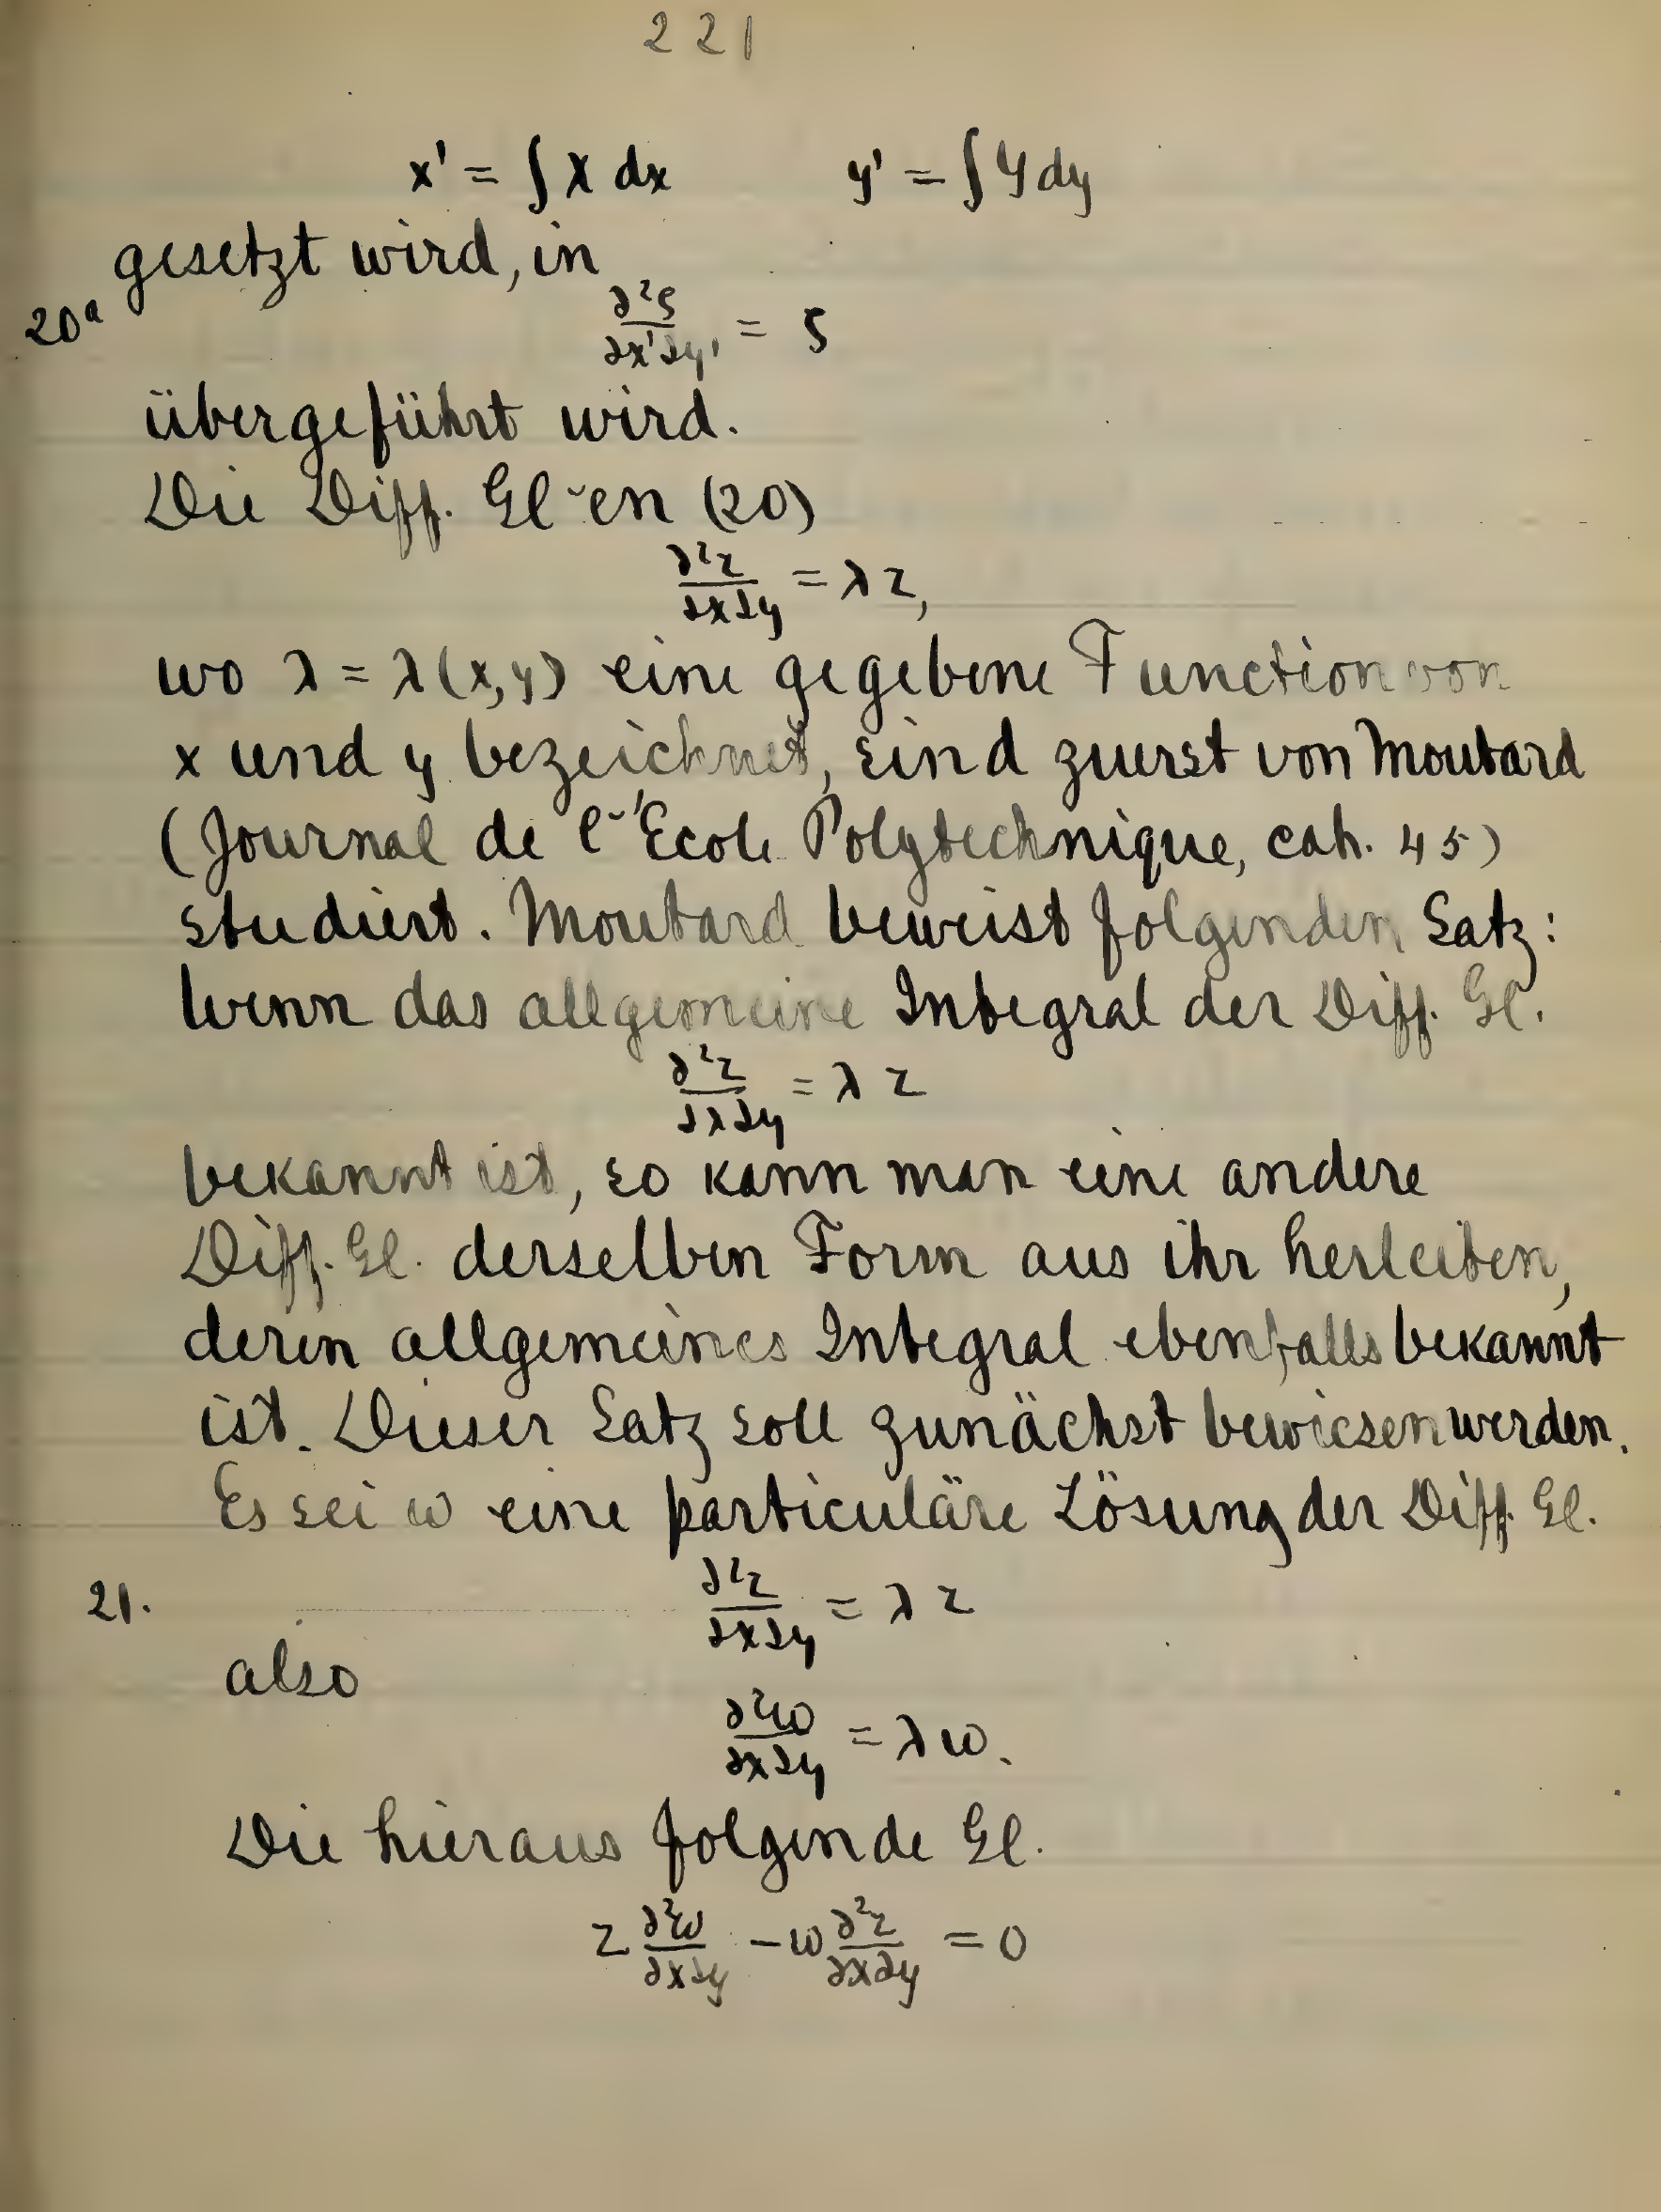 221
x' = ∫ X dx     y' = ∫ Y dy
gesetzt wird, in
20a     ∂²ζ/∂x'∂y' = ζ
übergeführt wird.
Die Diff. Gl-en (20)
∂²z/∂x∂y = λ z,
wo λ = λ(x,y) eine gegebene Function von
x und y bezeichnet, sind zuerst von Moutard
(Journal de l'École Polytechnique, cah. 45)
studiert. Moutard beweist folgenden Satz:
Wenn das allgemeine Integral der Diff. Gl.
∂²z/∂x∂y = λ z
bekannt ist, so kann man eine andere
Diff. Gl. derselben Form aus ihr herleiten,
deren allgemeines Integral ebenfalls bekannt
ist. Dieser Satz soll zunächst bewiesen werden.
Es sei ω eine particuläre Lösung der Diff. Gl.
21.     ∂²z/∂x∂y = λ z
also
∂²ω/∂x∂y = λ ω.
Die hieraus folgende Gl.
z ∂²ω/∂x∂y - ω ∂²z/∂x∂y = 0